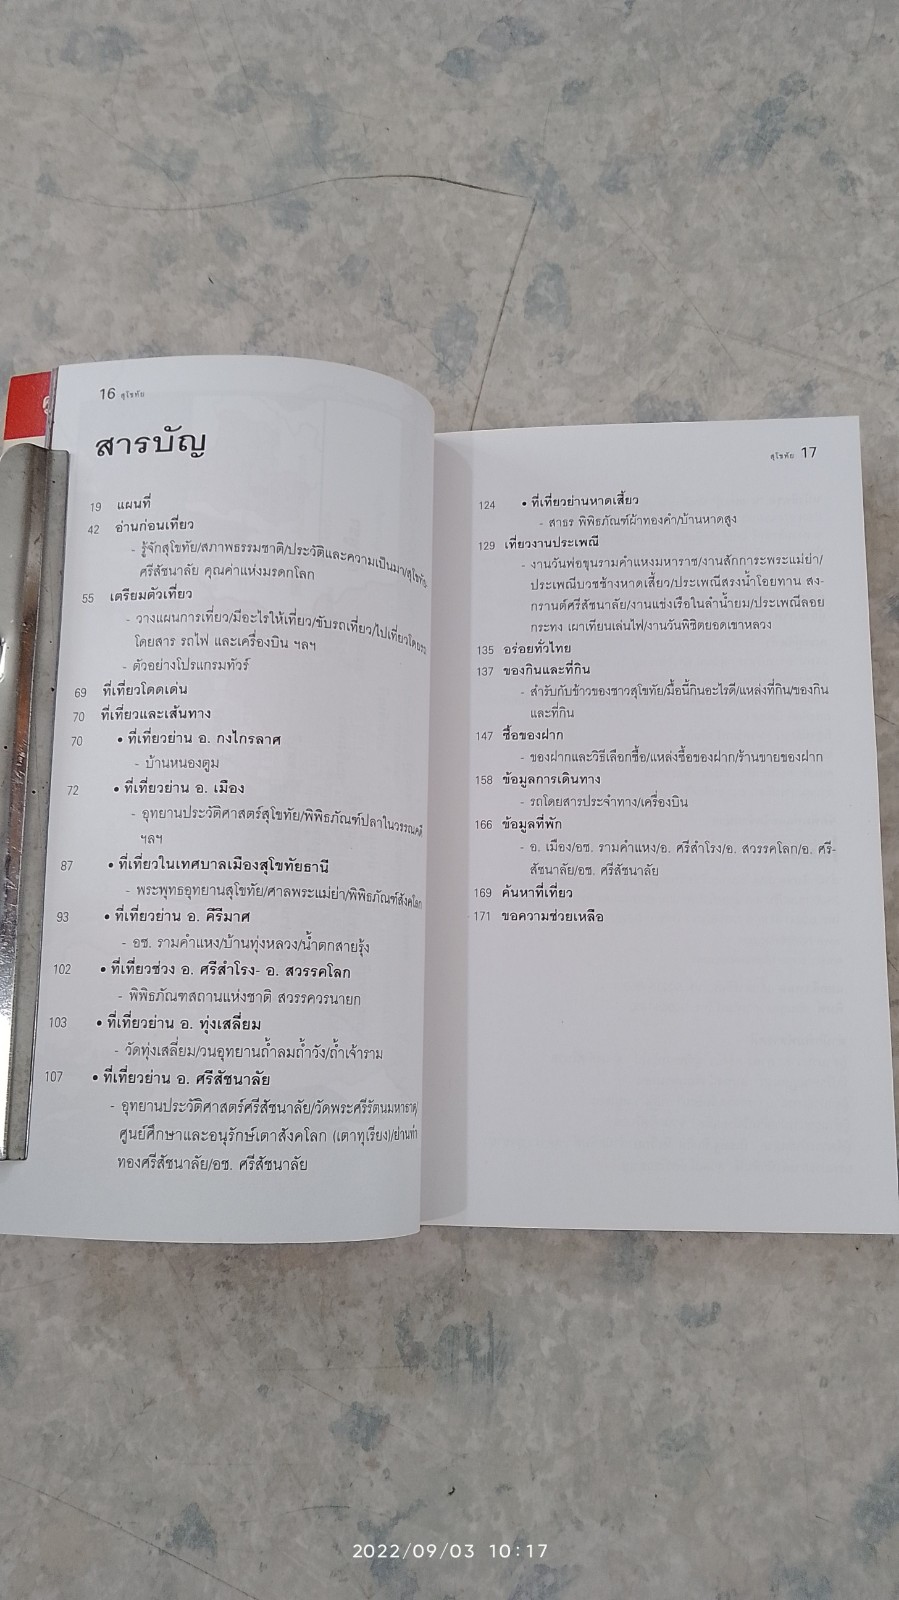 16 สุโขทัย
สารบัญ
19 แผนที่
42 อ่านก่อนเที่ยว
- รู้จักสุโขทัย/สภาพธรรมชาติ/ประวัติและความเป็นมา/สุโขทัย-
ศรีสัชนาลัย คุณค่าแห่งมรดกโลก
55 เตรียมตัวเที่ยว
- วางแผนการเที่ยว/มีอะไรให้เที่ยว/ขับรถเที่ยว/ไปเที่ยวโดยรถ
โดยสาร รถไฟ และเครื่องบิน ฯลฯ
- ตัวอย่างโปรแกรมทัวร์
69 ที่เที่ยวโดดเด่น
70 ที่เที่ยวและเส้นทาง
70 • ที่เที่ยวย่าน อ. กงไกรลาศ
- บ้านหนองตูม
72 • ที่เที่ยวย่าน อ. เมือง
- อุทยานประวัติศาสตร์สุโขทัย/พิพิธภัณฑ์ปลาในวรรณคดี
ฯลฯ
87 • ที่เที่ยวในเทศบาลเมืองสุโขทัยธานี
- พระพุทธอุทยานสุโขทัย/ศาลพระแม่ย่า/พิพิธภัณฑ์สังคโลก
93 • ที่เที่ยวย่าน อ. คีรีมาศ
- อช. รามคำแหง/บ้านทุ่งหลวง/น้ำตกสายรุ้ง
102 • ที่เที่ยวช่วง อ. ศรีสำโรง- อ. สวรรคโลก
- พิพิธภัณฑสถานแห่งชาติ สวรรควรนายก
103 • ที่เที่ยวย่าน อ. ทุ่งเสลี่ยม
- วัดทุ่งเสลี่ยม/วนอุทยานถ้ำลมถ้ำวัง/ถ้ำเจ้าราม
107 • ที่เที่ยวย่าน อ. ศรีสัชนาลัย
- อุทยานประวัติศาสตร์ศรีสัชนาลัย/วัดพระศรีรัตนมหาธาตุ/
ศูนย์ศึกษาและอนุรักษ์เตาสังคโลก (เตาทุเรียง)/ย่านท่า
ทองศรีสัชนาลัย/อช. ศรีสัชนาลัย
สุโขทัย 17
124 • ที่เที่ยวย่านหาดเสี้ยว
- สาธร พิพิธภัณฑ์ผ้าทองคำ/บ้านหาดสูง
129 เที่ยวงานประเพณี
- งานวันพ่อขุนรามคำแหงมหาราช/งานสักการะพระแม่ย่า/
ประเพณีบวชช้างหาดเสี้ยว/ประเพณีสรงน้ำโอยทาน สง-
กรานต์ศรีสัชนาลัย/งานแข่งเรือในลำน้ำยม/ประเพณีลอย
กระทง เผาเทียนเล่นไฟ/งานวันพิชิตยอดเขาหลวง
135 อร่อยทั่วไทย
137 ของกินและที่กิน
- สำรับกับข้าวของชาวสุโขทัย/มื้อนี้กินอะไรดี/แหล่งที่กิน/ของกิน
และที่กิน
147 ซื้อของฝาก
- ของฝากและวิธีเลือกซื้อ/แหล่งซื้อของฝาก/ร้านขายของฝาก
158 ข้อมูลการเดินทาง
- รถโดยสารประจำทาง/เครื่องบิน
166 ข้อมูลที่พัก
- อ. เมือง/อช. รามคำแหง/อ. ศรีสำโรง/อ. สวรรคโลก/อ. ศรี-
สัชนาลัย/อช. ศรีสัชนาลัย
169 ค้นหาที่เที่ยว
171 ขอความช่วยเหลือ
2022/09/03 10:17